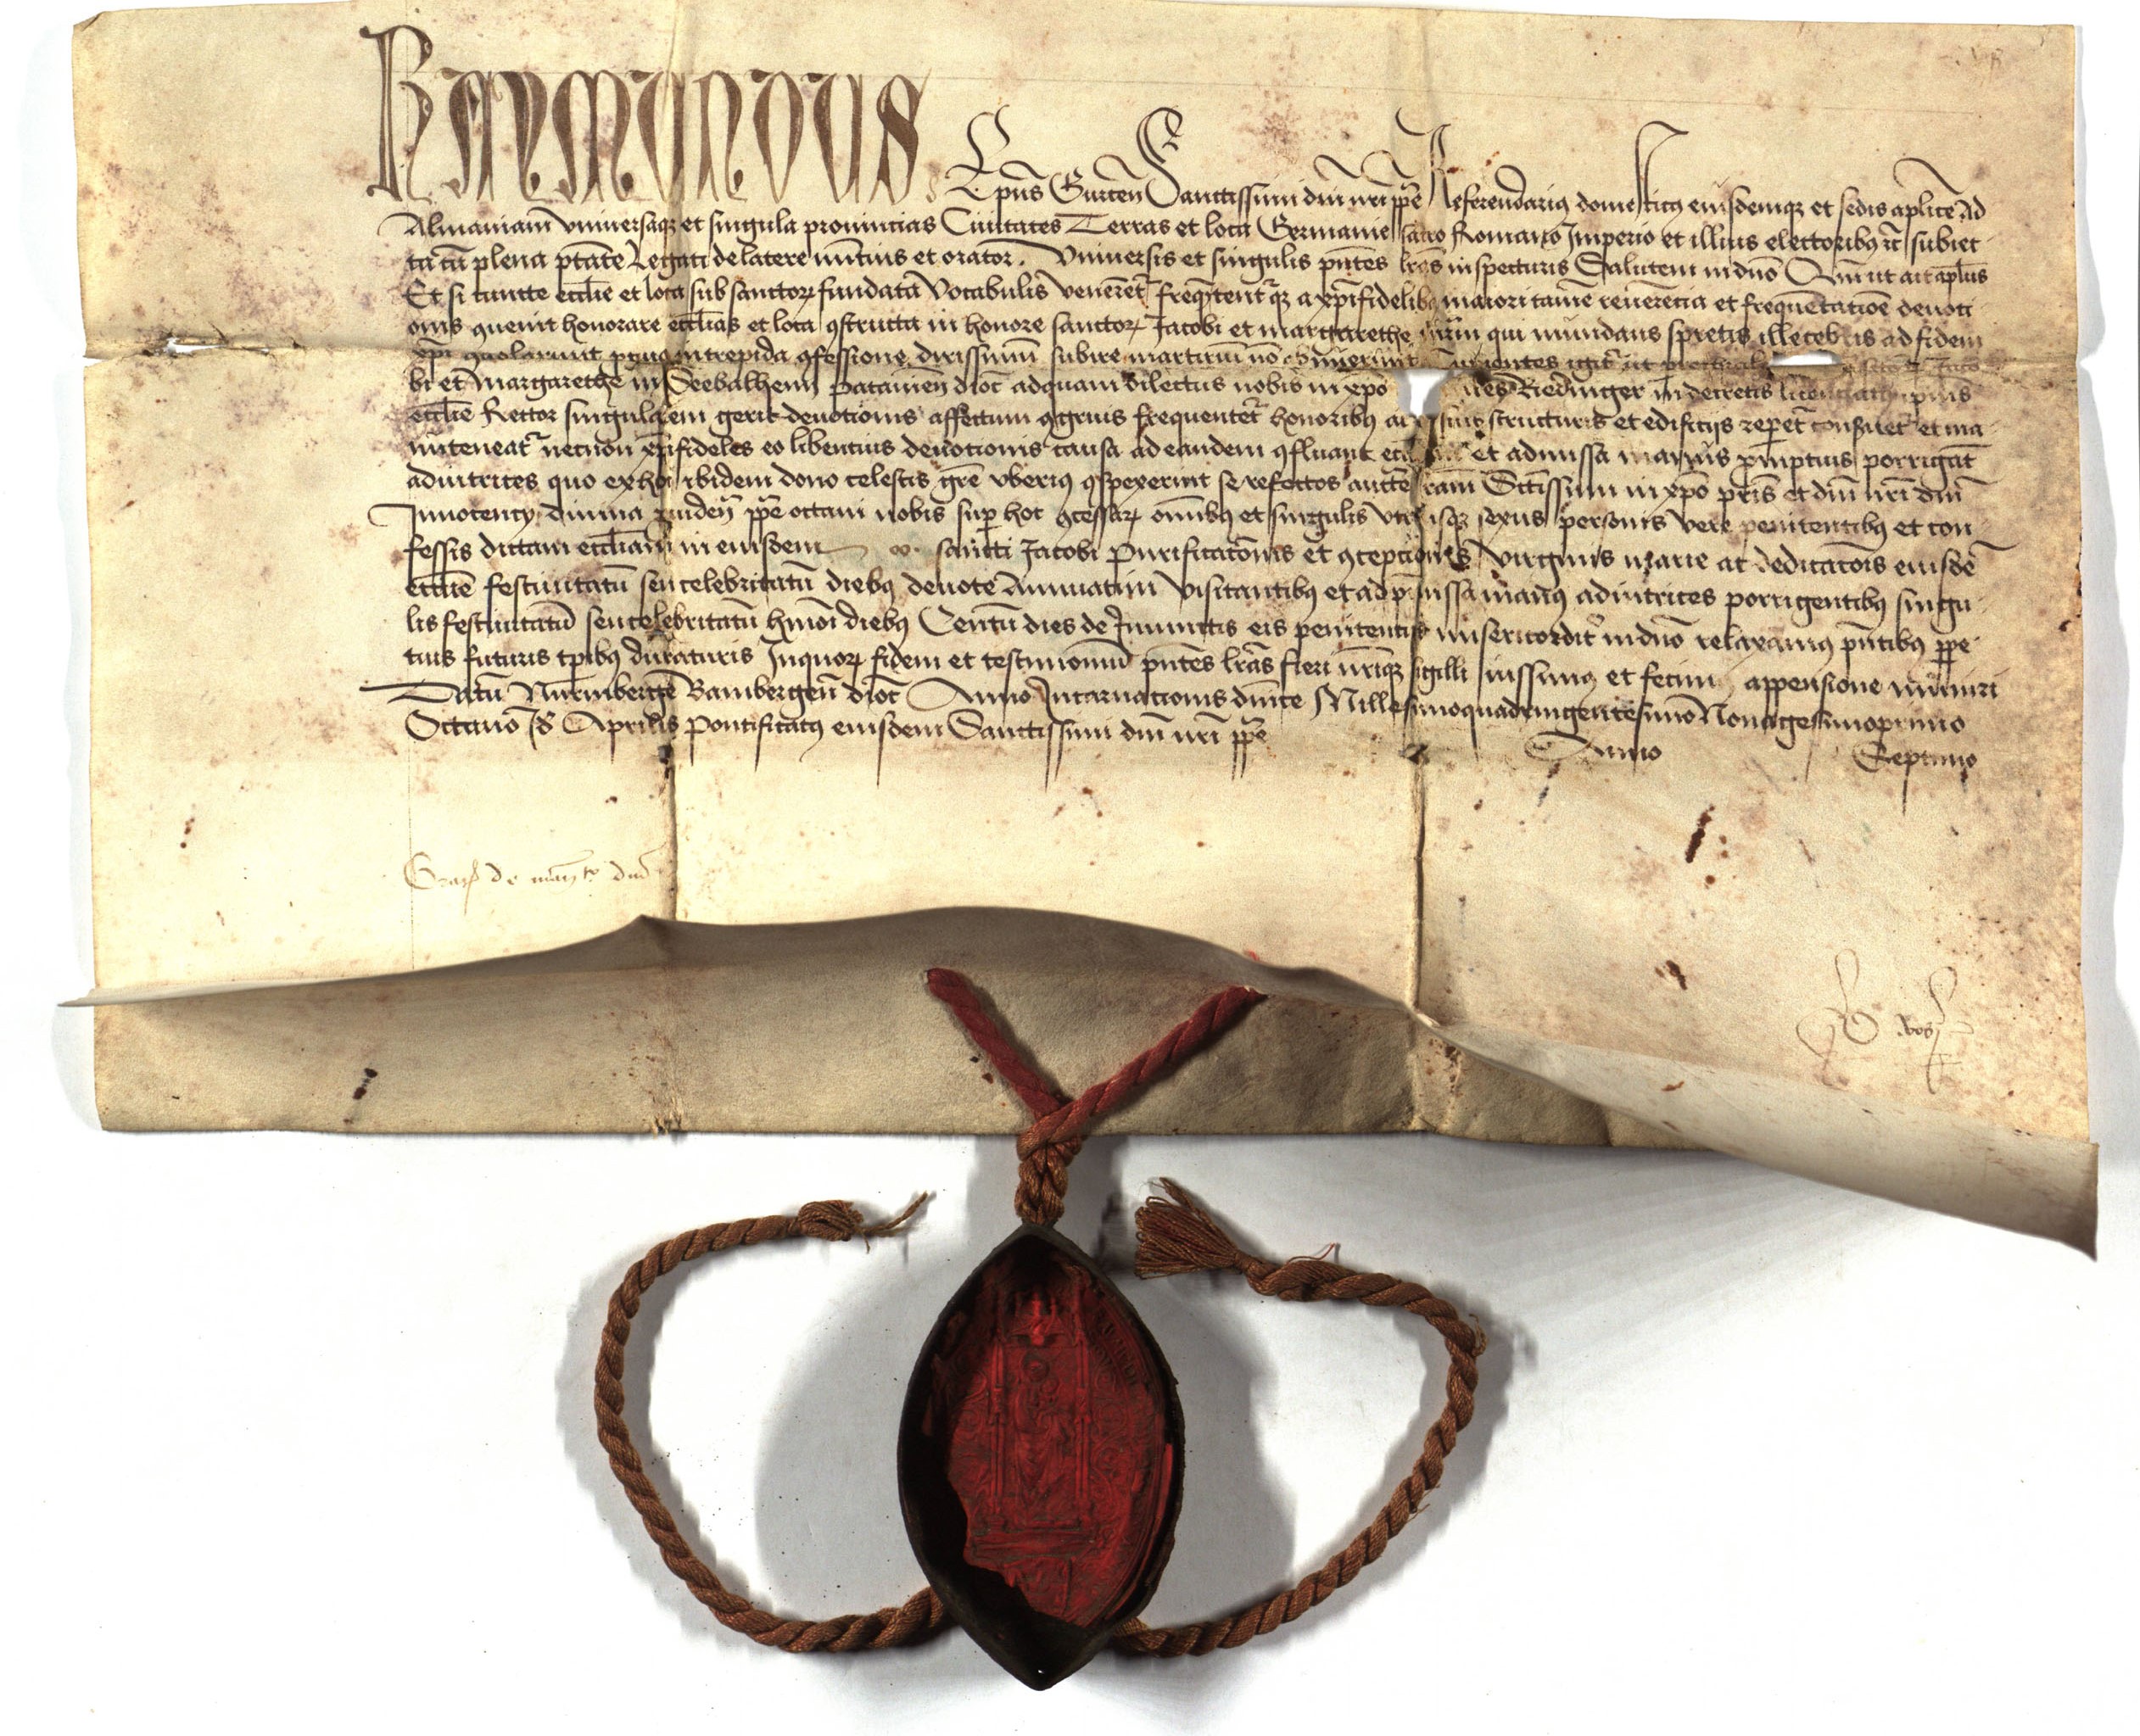 RAYMUNDUS
Ep̄us Gurceñ Sanctissimi dn̄i nr̄i pp̄e Referendarius domesticus eiusdemq; et sedis aplīce Ad
Almaniam vniuersaq; et singula prouincias Ciuitates Terras et loca Germanie sacro Romano Imperio et illius electoribꝰ ⁊c̄ subiec-
ta cū plena p̄tātē Legati de latere nūtius et orator. Vniuersis et singulis pn̄tes lr̄as inspecturis Salutem in dn̄o Qm̄ ut ait apl̄us
Et si cuncte ecclīe et loca sub sanctoꝝ fundata Vocabulis venerēt̄ freq̄tent̄q; a xp̄ifidelibꝰ maiori tamē reuerēcia et frequētatiōe deuoti
onis ꝯuenit honorare ecclīas et loca ꝯstructa in honore sanctoꝝ Jacobi et margarethe qui mundanis spretis illecebris ad fidem
xp̄i ꝯuolarunt intrepida ꝯfessione dirissimū subire martiriū nō igit̄ ut
bi et Margarethe in Seebalhenn Patauieñ dioc̄ ad quam dilectus nobis in xp̄o Riedinger in decretis
ecclīe Rector singularem gerit deuotionis affectum ꝯgruis frequentet̄ honoribus ac structuris et edificijs reperet̄ conseruet̄ et ma-
nuteneat̄ necnon xp̄ifideles eo libentius deuotionis causa ad eandem ꝯfluant et ad missa manus ꝓmptius porrigāt
adiutrices quo ex hoc ibidem dono celestis gr̄e vberius ꝯspexerint se refectos aucte Sctīssimi in xp̄o pr̄is et dn̄i nr̄i dn̄i
Innocentij diuina ꝓuideñ pp̄e octaui nobis sup̄ hoc ꝯcessaꝝ omībꝰ et singulis vtriusq; sexus personis vere penitentibꝰ et con
fessis dictam ecclīam in eiusdem sancti Jacobi Purificatōnis et ꝯceptionis Virginis marie ac dedicatōis eiusdē
ecclīe festiuitatū seu celebritatū diebꝰ deuote Annuatim visitantibꝰ et ad p̄missa manꝰ adiutrices porrigentibꝰ singu-
lis festiuitatū seu celebritatū hm̄oi diebꝰ Centū dies de Iniunctis eis penitentijs misericordit̄ in dn̄o relaxamus pn̄tibus ꝑpe-
tuis futuris tp̄ibꝰ duraturis In quoꝝ fidem et testimoniū pn̄tes lr̄as fieri nr̄iq; sigilli iussimꝰ et fecimꝰ appensione muniri
Datū Nurmberge Bambergeñ dioc̄ Anno Incarnationis dn̄ice Millesimoquadringentesimo Nonagesimoprimo
Octauo Id̄ Aprilis Pontificatꝰ eiusdem Sanctissimi dn̄i nr̄i pp̄e Anno Septimo
de man̄to dn̄i